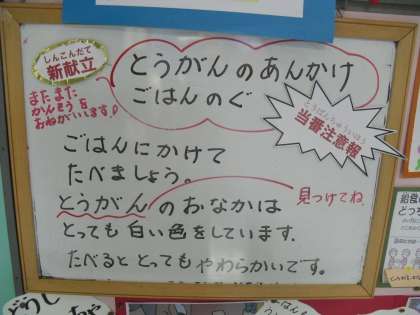 しんこんだて
新献立
またまた
かんそうを
おねがいします!
とうがんのあんかけ
ごはんのぐ
とうばんちゅういほう
当番注意報
ごはんにかけて
たべましょう。
見つけてね
とうがんのおなかは
とっても白い色をしています.
たべるととってもやわらかいです。
どうし